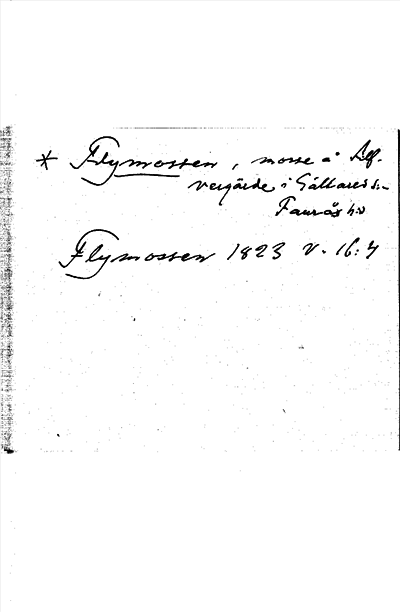 * Flymossen, mosse å Alf-
vergärde i Gällareds sn
Faurås hd
Flymossen 1823 V. 16:7